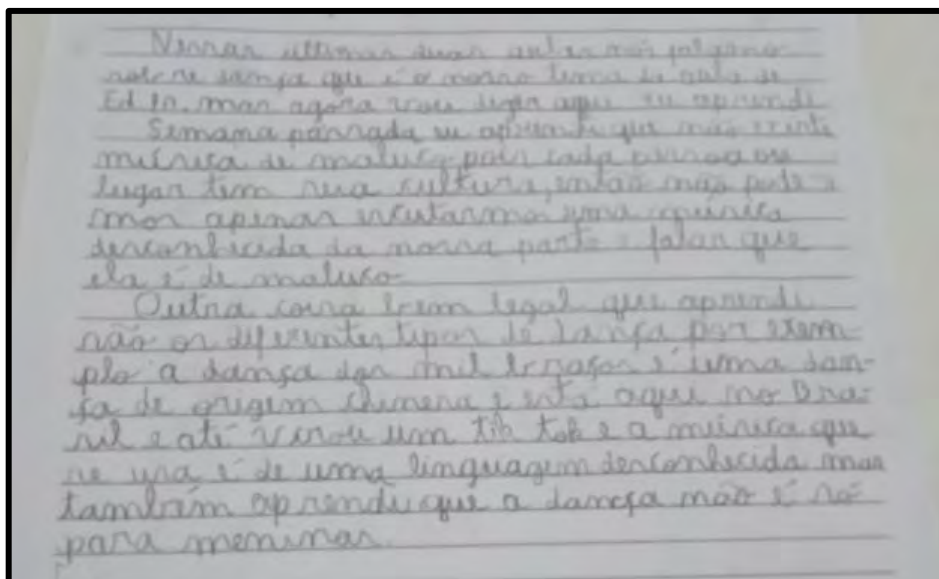 Nessas ultimas duas aulas nós falamos
sobre dança que é o nosso tema da aula de
Ed Fi. mas agora vou dizer aqui eu aprendi
Semana passada eu aprendi que não existe
música de maluco pois cada pessoa ou
lugar tem sua cultura, então não pode
mos apenas escutarmos uma música
desconhecida da nossa parte e falar que
ela é de maluco
Outra coisa bem legal que aprendi
são os diferentes tipos de dança por exem-
plo a dança dos mil braços é uma dan-
ça de origem chinesa e está aqui no Bra-
sil e até virou um tik tok e a música que
se usa é de uma linguagem desconhecida mas
também aprendi que a dança não é só
para meninas.